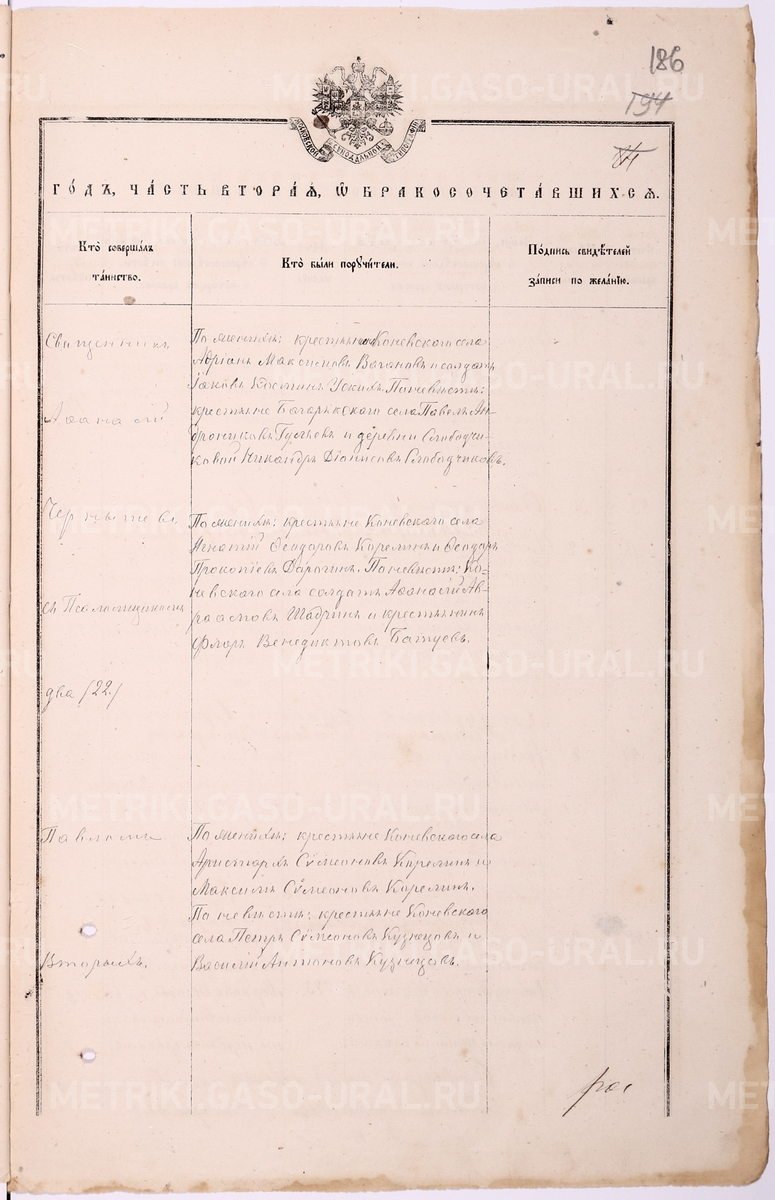 186
194
МОСКОВСКОЙ СИНОДАЛЬНОЙ ТИПОГРАФІИ
ГО́ДЪ, ЧА́СТЬ ВТОРА́Я, Ѡ БРАКОСОЧЕТА́ВШИХСЯ.
Кто̀ соверша́лъ
та́инство.
Кто̀ бы́ли порꙋчи́тели.
По́дпись свидѣ́телей
за́писи по жела́нію.
Священникъ
Аѳанасій
Чернышевъ
съ Псаломщикомъ
два /22/
Павломъ
Вторыхъ.
По женихѣ: крестьянинъ Коневскаго села
Адріанъ Максимовъ Вагановъ и солдатъ
Іаковъ Косминъ Ускихъ. По невѣстѣ:
крестьяне Багарякскаго села Павелъ Ан-
дрониковъ Гусевъ и деревни Слободчи-
ковой Никандръ Діонисовъ Слободчиковъ.
По женихѣ: крестьяне Коневскаго села
Игнатій Ѳеодоровъ Корелинъ и Ѳеодоръ
Прокопіевъ Дарогинъ. По невѣстѣ: Ко-
невскаго села солдатъ Аѳанасій Ав-
раамовъ Шадринъ и крестьянинъ
Флоръ Венедиктовъ Батуевъ.
По женихѣ: крестьяне Коневскаго села
Аристархъ Сѵмеоновъ Корелинъ и
Максимъ Сѵмеоновъ Корелинъ.
По невѣстѣ: крестьяне Коневскаго
села Петръ Сѵмеоновъ Кузнецовъ и
Василій Антоновъ Кузнецовъ.
METRIKI.GASO-URAL.RU